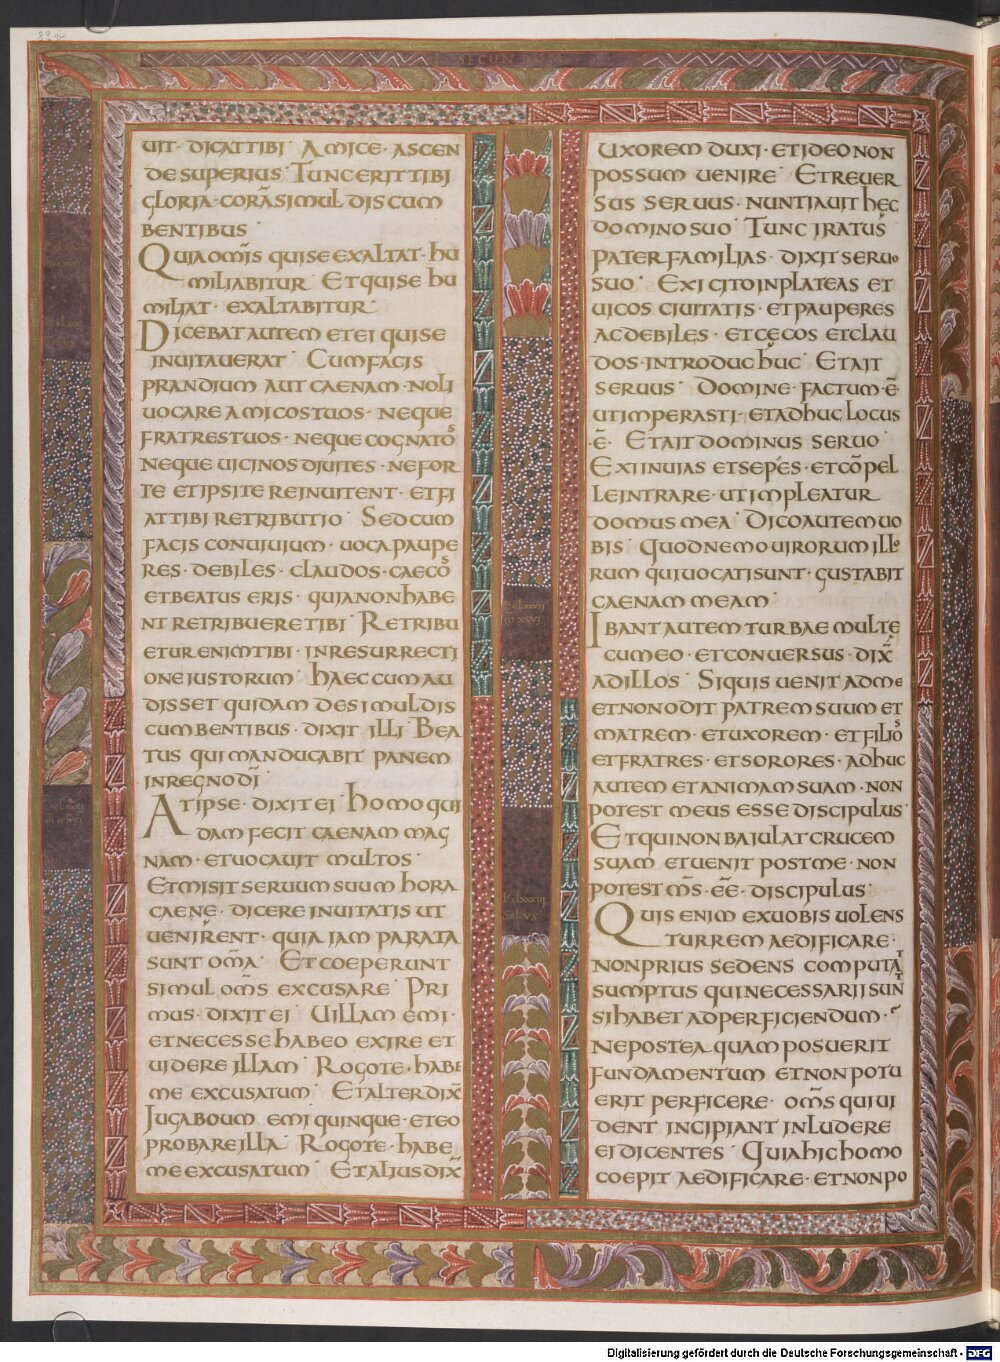 SECUN
UIT· DICAT TIBI AMICE· ASCEN
DE SUPERIUS TUNC ERIT TIBI
GLORIA· CORÃ SIMUL DISCUM
BENTIBUS
QUIA OMĪS QUI SE EXALTAT· HU
MILIABITUR ET QUI SE HU
MILIAT· EXALTABITUR
DICEBAT AUTEM ET EI QUI SE
INUITAUERAT CUM FACIS
PRANDIUM AUT CAENAM· NOLI
UOCARE AMICOS TUOS· NEQUE
FRATRES TUOS· NEQUE COGNATOS
NEQUE UICINOS DIUITES· NE FOR
TE ET IPSI TE REINUITENT· ET FI
AT TIBI RETRIBUTIO SED CUM
FACIS CONUIUIUM· UOCA PAUPE
RES· DEBILES· CLAUDOS· CAECOS
ET BEATUS ERIS· QUIA NON HABE
NT RETRIBUERE TIBI RETRIBU
ETUR ENIM TIBI· IN RESURRECTI
ONE IUSTORUM HAEC CUM AU
DISSET QUIDAM DE SIMUL DIS
CUMBENTIBUS· DIXIT ILLI BEA
TUS QUI MANDUCABIT PANEM
IN REGNO DĪ
AT IPSE· DIXIT EI HOMO QUI
DAM FECIT CAENAM MAG
NAM· ET UOCAUIT MULTOS
ET MISIT SERUUM SUUM HORA
CAENĘ· DICERE INUITATIS UT
UENIRENT· QUIA IAM PARATA
SUNT OM̄A ET COEPERUNT
SIMUL OM̄S EXCUSARE PRI
MUS· DIXIT EI UILLAM EMI·
ET NECESSE HABEO EXIRE ET
UIDERE ILLAM ROGO TE· HABE
ME EXCUSATUM ET ALTER DIX̄
IUGA BOUM EMI QUINQUE· ET EO
PROBARE ILLA ROGO TE· HABE
ME EXCUSATUM ET ALIUS DIX̄
UXOREM DUXI· ET IDEO NON
POSSUM UENIRE ET REUER
SUS SERUUS· NUNTIAUIT HĘC
DOMINO SUO TUNC IRATUS
PATER FAMILIAS· DIXIT SERUO
SUO EXI CITO IN PLATEAS ET
UICOS CIUITATIS· ET PAUPERES
AC DEBILES· ET CĘCOS ET CLAU
DOS· INTRODUC HUC ET AIT
SERUUS DOMINE· FACTUM Ē
UT IMPERASTI· ET ADHUC LOCUS
·Ē· ET AIT DOMINUS SERUO
EXI IN UIAS ET SEPES· ET CŌPEL
LE INTRARE· UT IMPLEATUR
DOMUS MEA DICO AUTEM UO
BIS QUOD NEMO UIRORUM ILLO
RUM QUI UOCATI SUNT· GUSTABIT
CAENAM MEAM
IBANT AUTEM TURBAE MULTĘ
CUM EO· ET CONUERSUS· DIX̄
AD ILLOS SI QUIS UENIT AD ME
ET NON ODIT PATREM SUUM ET
MATREM· ET UXOREM· ET FILIOS
ET FRATRES· ET SORORES· ADHUC
AUTEM ET ANIMAM SUAM· NON
POTEST MEUS ESSE DISCIPULUS
ET QUI NON BAIULAT CRUCEM
SUAM ET UENIT POST ME· NON
POTEST M̄S· ĒĒ· DISCIPULUS
QUIS ENIM EX UOBIS UOLENS
TURREM AEDIFICARE·
NON PRIUS SEDENS COMPUTAT
SUMPTUS QUI NECESSARII SUNT
SI HABET AD PERFICIENDUM·
NE POSTEA QUAM POSUERIT
FUNDAMENTUM ET NON POTU
ERIT PERFICERE· OM̄S QUI UI
DENT INCIPIANT INLUDERE
EI DICENTES QUIA HIC HOMO
COEPIT AEDIFICARE· ET NON PO
Digitalisierung gefördert durch die Deutsche Forschungsgemeinschaft - DFG